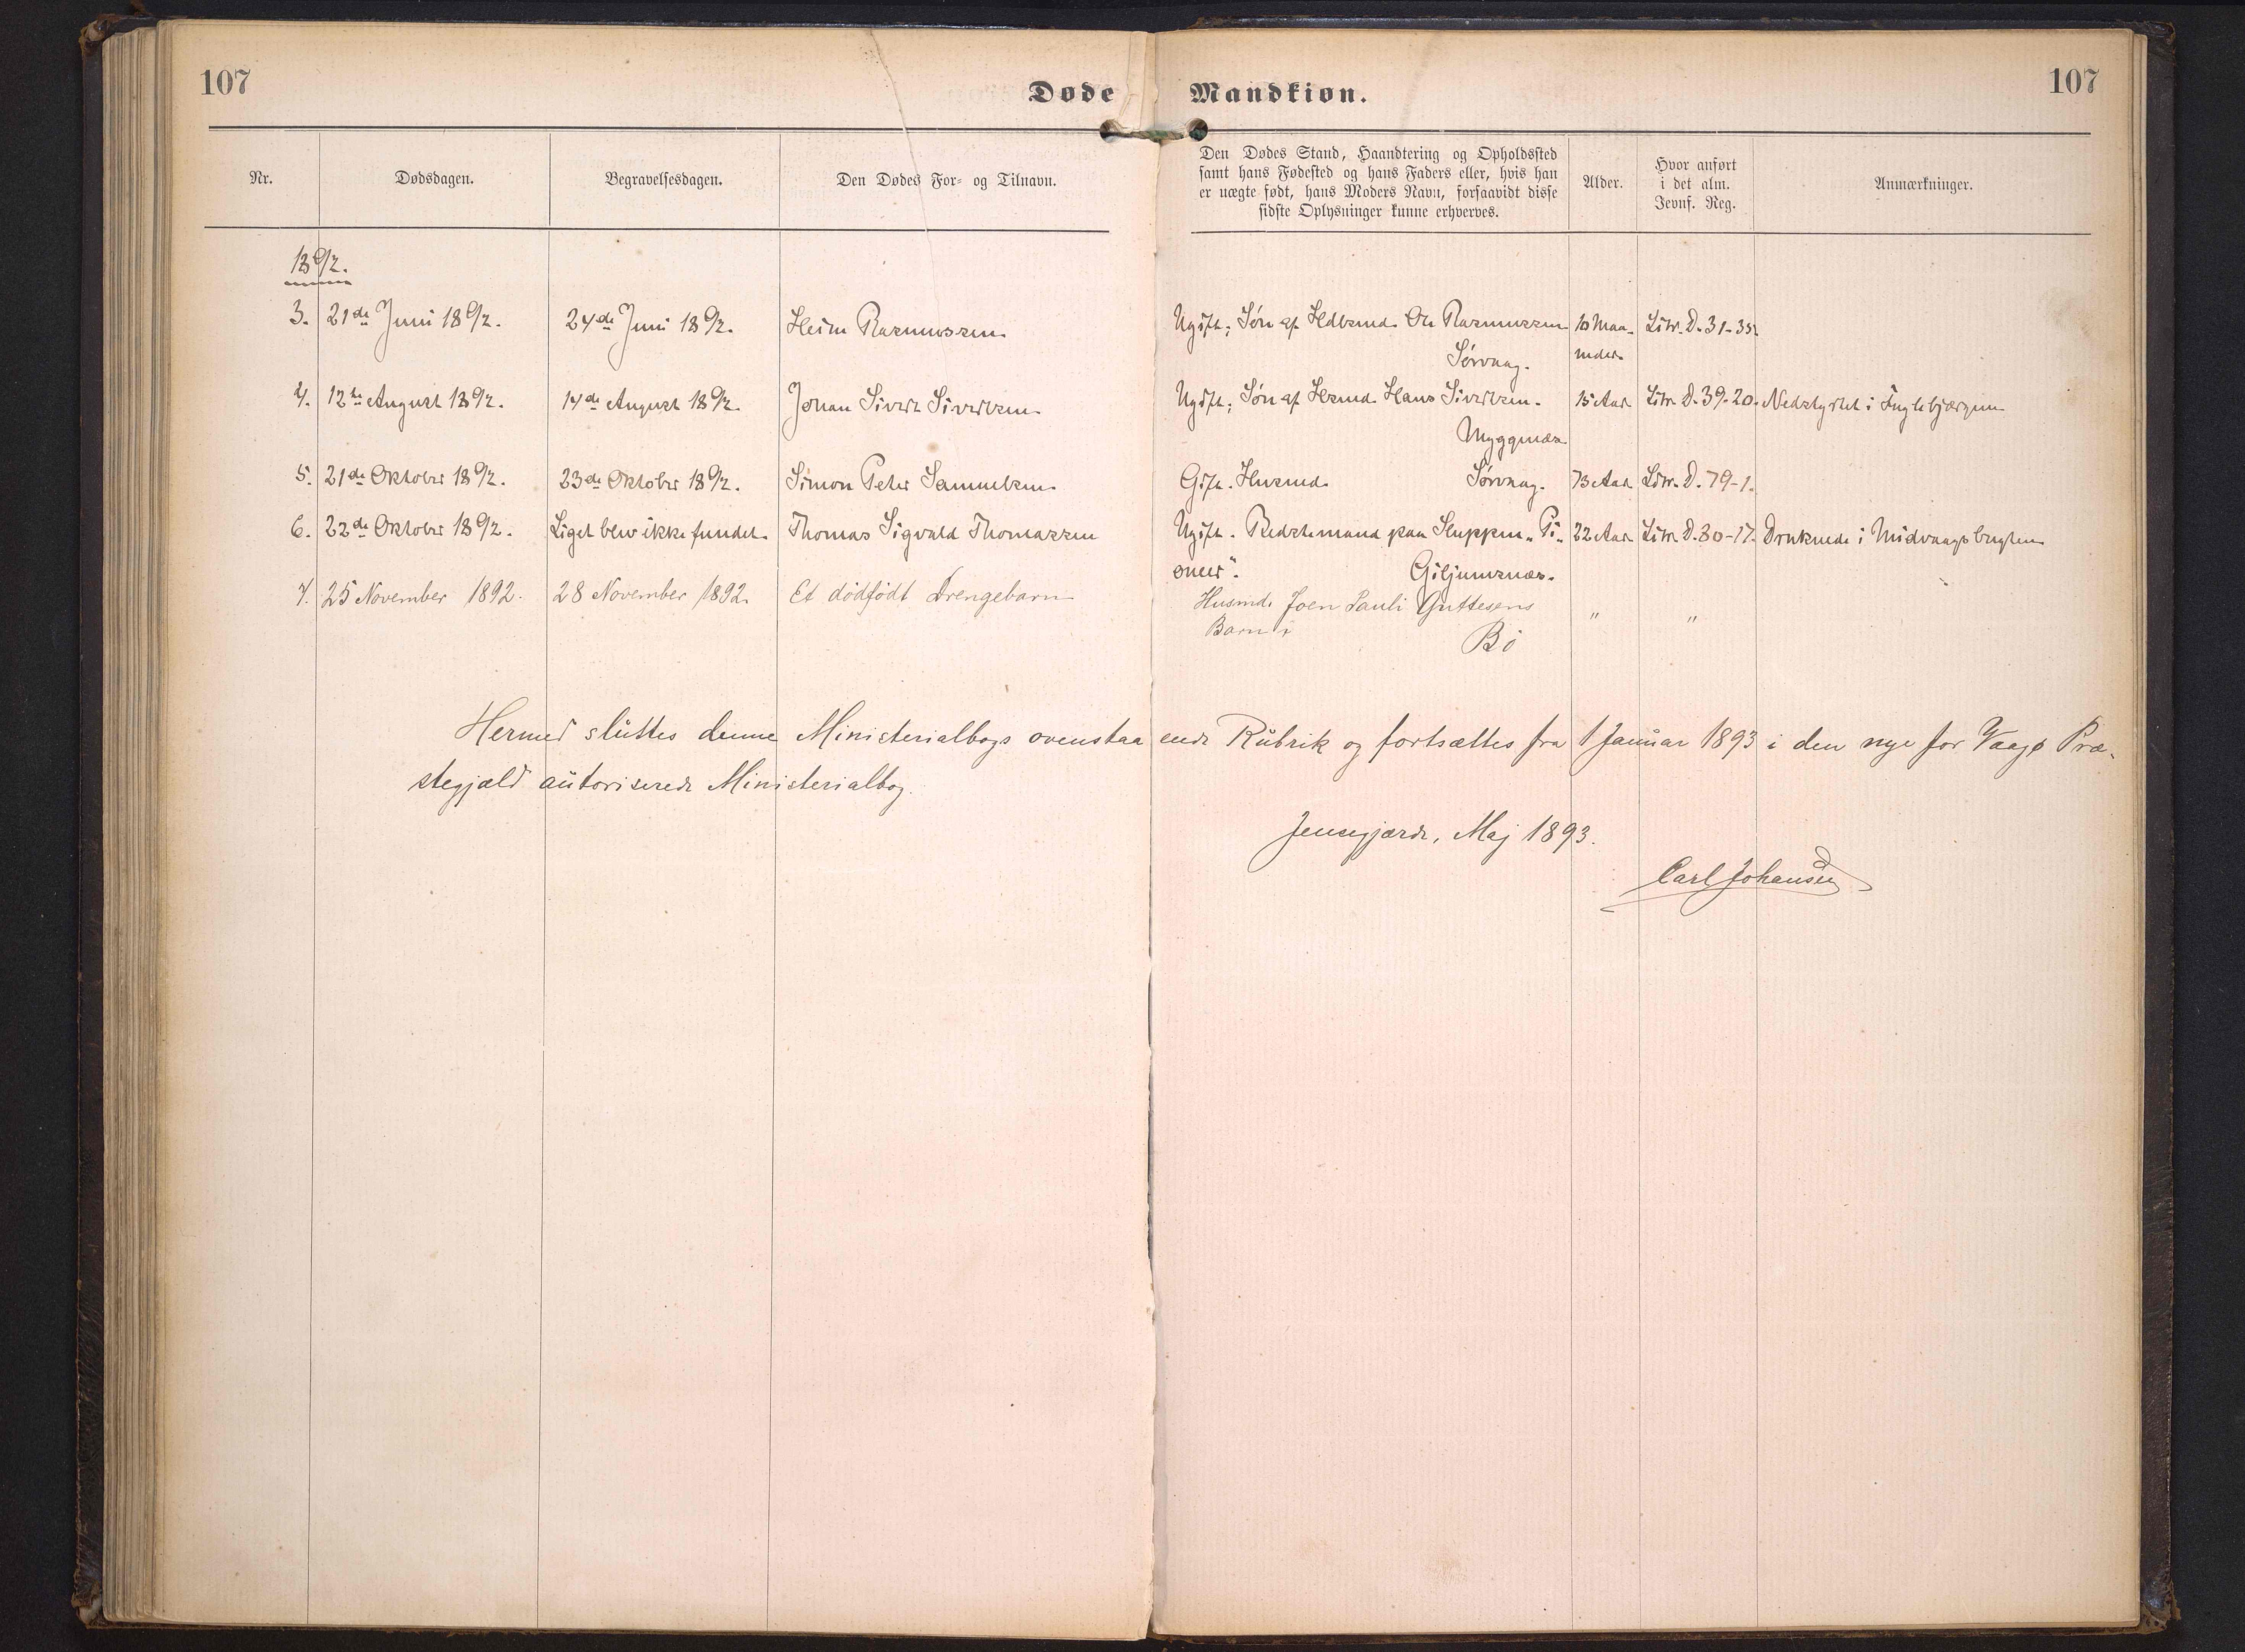 107
Døde Mandkiøn.
107
Nr.
Dødsdagen.
Begravelsesdagen.
Den Dødes For- og Tilnavn.
Den Dødes Stand, Haandtering og Opholdssted
samt hans Fødested og hans Faders eller, hvis han
er uægte født, hans Moders Navn, forsaavidt disse
sidste Oplysninger kunne erhverves.
Alder.
Hvor anført
i det alm.
Jevnf. Reg.
Anmærkninger.
1892.
3. 21de Juni 1892. 24de Juni 1892. Heim Rasmussen Ugift; Søn af Hdbsmd. Ole Rasmussen 10 Maa- Litr. D. 31-35.
Sørvaag. neder.
4. 12te August 1892. 14de August 1892. Johan Sivert Sivertsen Ugift; Søn af Husmd. Hans Sivertsen. 15 Aar Litr. D. 39-20. Nedstyrtet i Fuglebjærgene
Myggenæs
5. 21de Oktober 1892. 23de Oktober 1892. Simon Peter Samuelsen Gift. Husmd. Sørvaag. 73 Aar Litr. D. 79-1.
6. 22de Oktober 1892. Liget blev ikke fundet. Thomas Sigvald Thomassen Ugift. Bedstemand paa Sluppen „Pi- 22 Aar Litr. D. 80-17. Druknede i Midvaagsbugten
oneer". Giljumsnæs.
7. 25 November 1892. 28 November 1892. Et dödfödt Drengebarn Husmd. Joen Pauli Guttesens " "
Barn i Bö
Hermed sluttes denne Ministerialbogs ovenstaaende Rubrik og fortsættes fra 1 Januar 1893 i den nye for Vaagø Præ-
stegjæld autoriserede Ministerialbog.
Jensegjærde, Maj 1893.
Carl Johansen